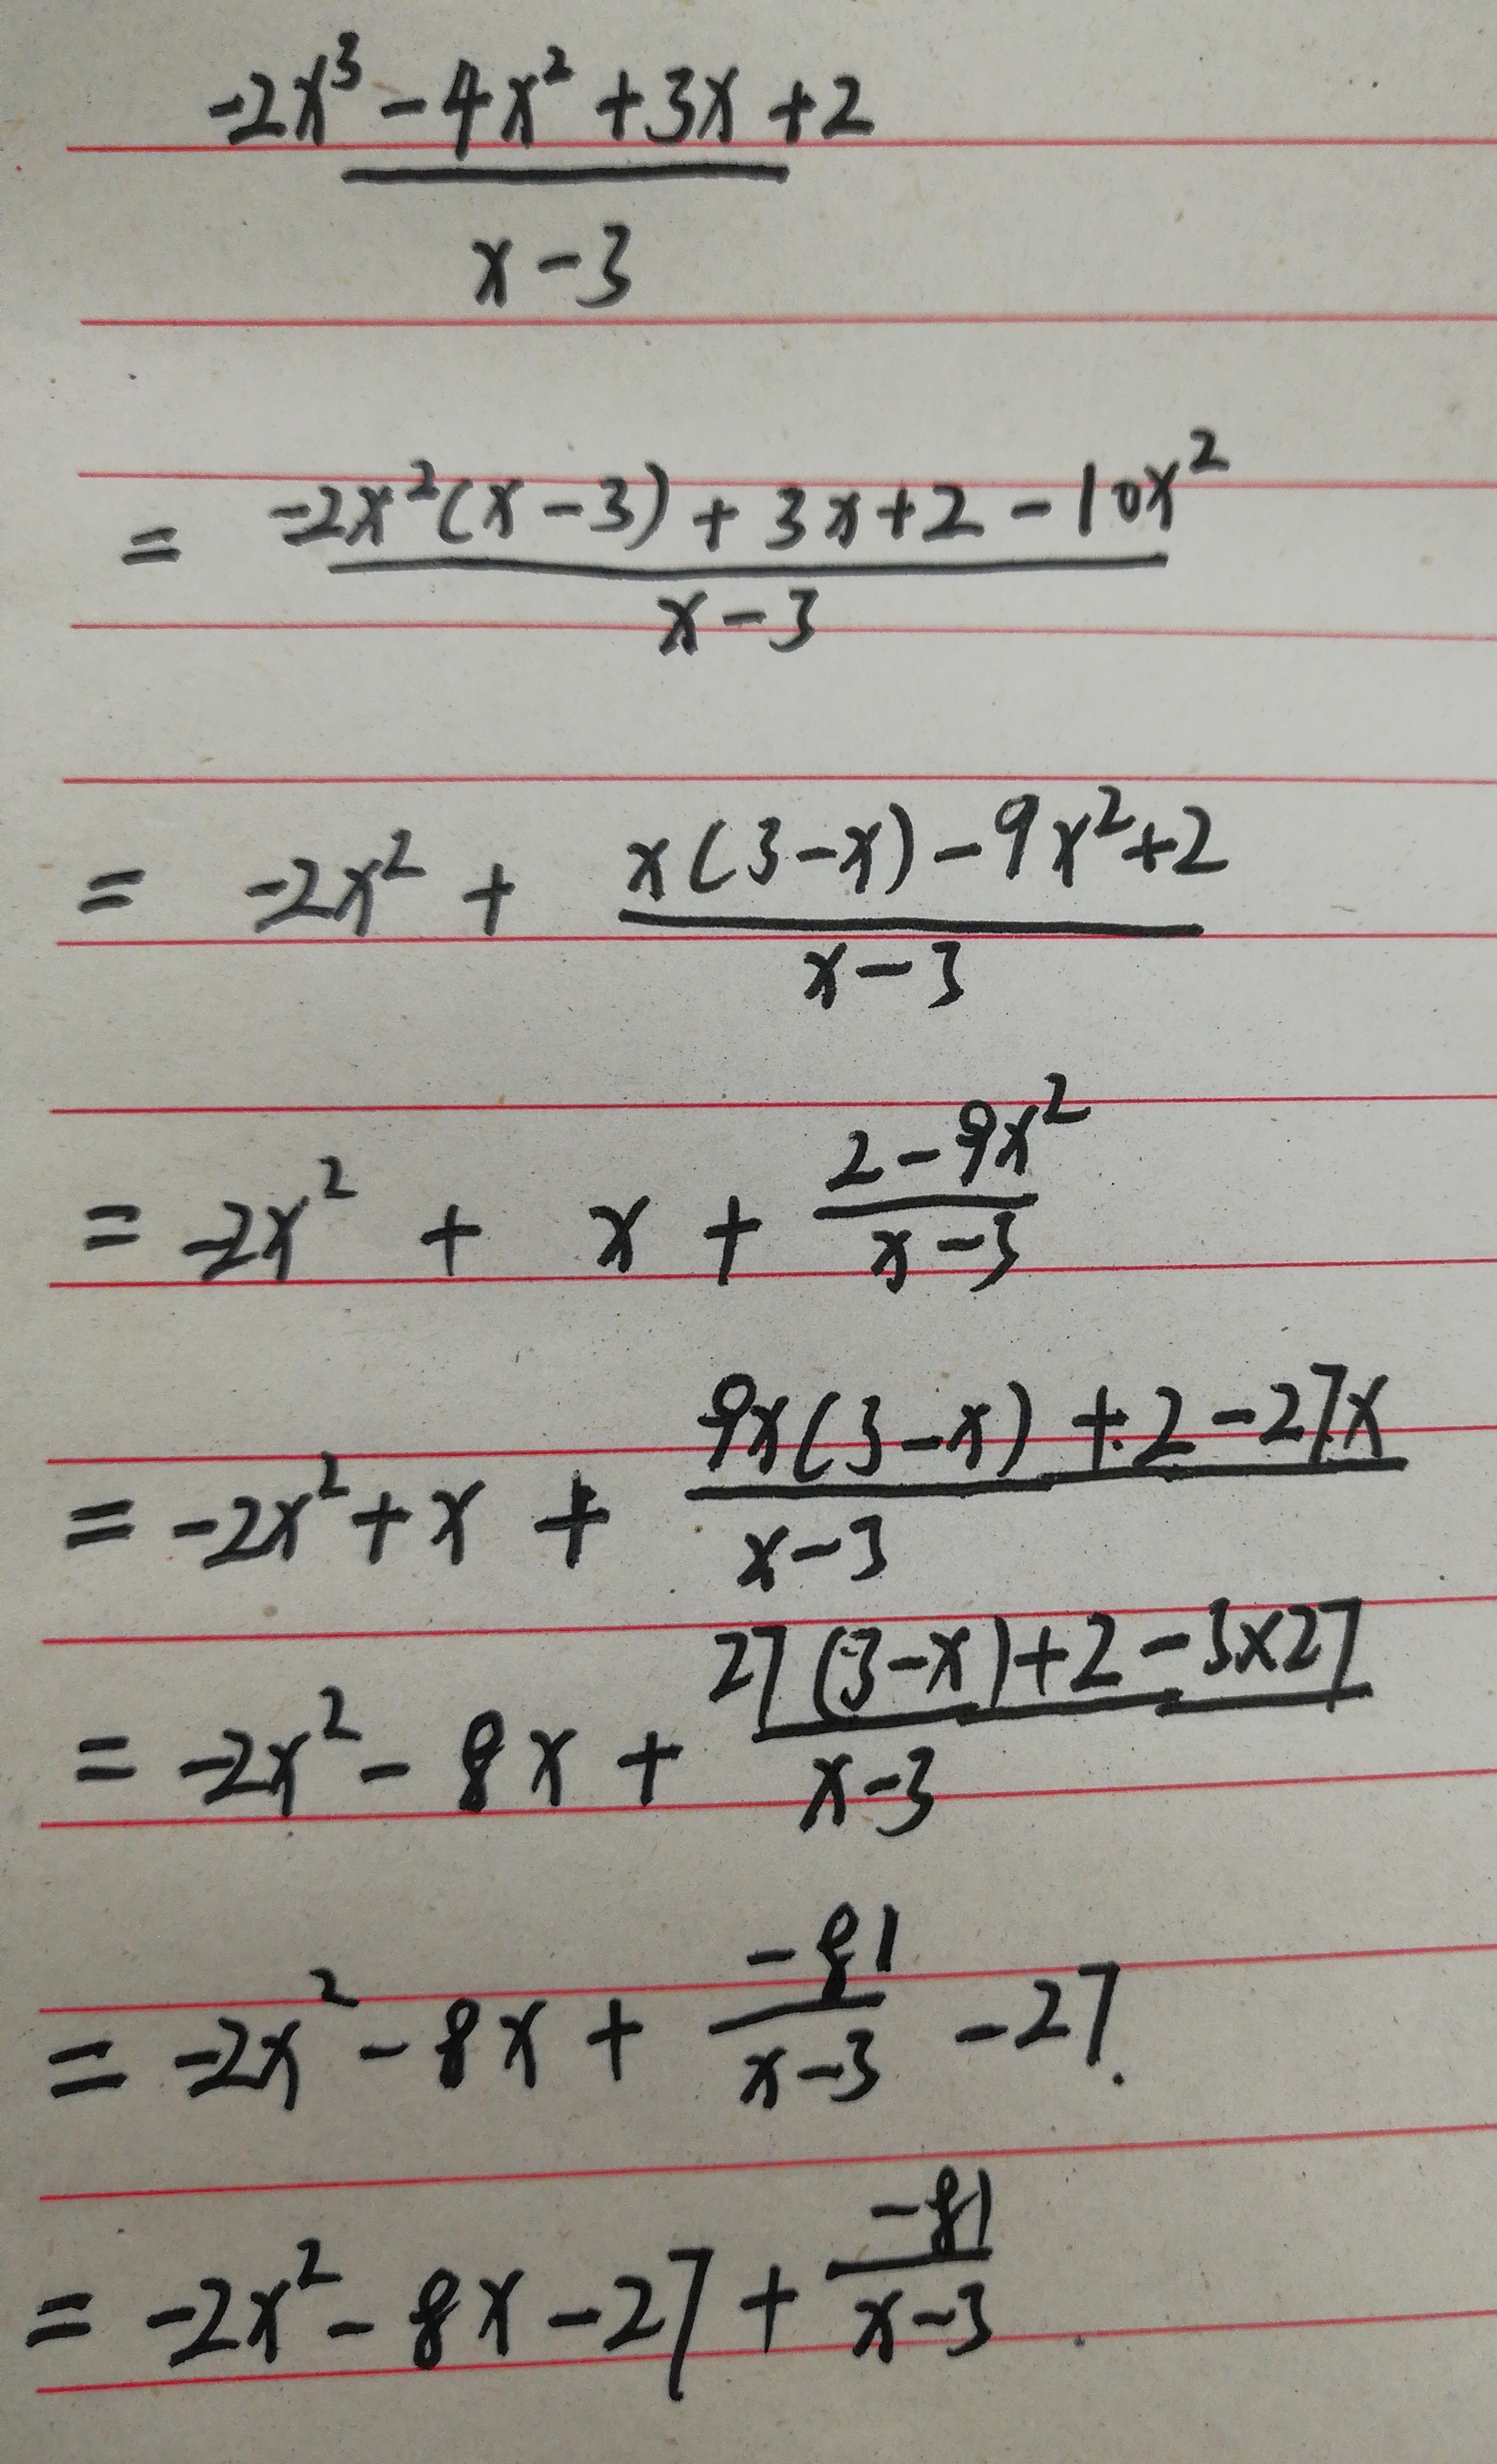 -2x³ - 4x² + 3x + 2
x - 3
= -2x²(x - 3) + 3x + 2 - 10x²
x - 3
= -2x² + x(3 - x) - 9x² + 2
x - 3
= -2x² + x + 2 - 9x²
x - 3
= -2x² + x + 9x(3 - x) + 2 - 27x
x - 3
= -2x² - 8x + 27(3 - x) + 2 - 3×27
x - 3
= -2x² - 8x + -81
x - 3 - 27.
= -2x² - 8x - 27 + -81
x - 3